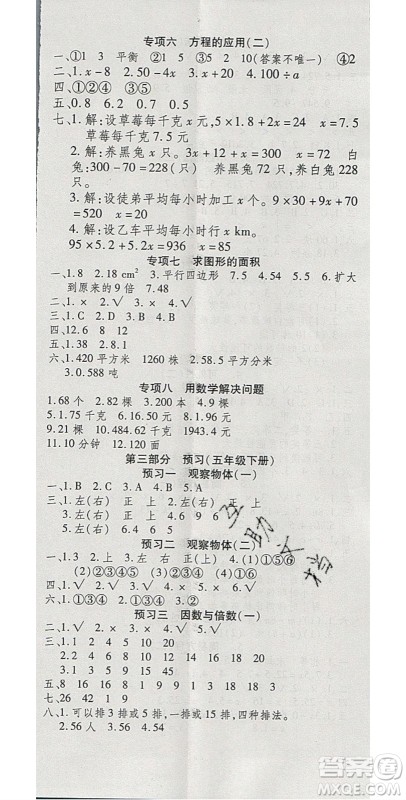 专项六　方程的应用(二)
一、①1　3　平衡　②3　5　2　10(答案不唯一)　④2
二、1.x－8　2.50－4x　3.2x　4.100÷a
四、①②④　③⑤
五、0.8　0.5
七、1.解：设草莓每千克x元，5×1.8+2x=24　x=7.5
草莓每千克7.5元
2.解：养黑兔x只，　3x+x=300　x=72　白
兔：300－70=228(只)　养黑兔72只，养白兔228
只。
3.解：设徒弟平均每小时加工x个。9×30+9x+70
=520　x=20
4.解：设乙车平均每小时行xkm。
95×5.2+5.2x=936　x=85
专项七　求图形的面积
一、1.8　2.18 cm²　3.平行四边形　7.2　4.54　5.5　6.扩大
到原来的9倍　7.48
二、1.×　2.√　3.√　4.×　5.×
三、1.C　2.D　3.B　4.D
四、12.6　32
五、1.38　3.30
六、1.420平方米　1260株　2.85平方分米
3.0.588吨
专项八　用数学解决问题
1.68个　2.2棵　3.200本　4.9棵
5.1.75千克　6.49棵　7.4.5千克　8.49棵
9.21棵　10.484.5千克　1943.4元
11.10分钟　12.40面
第三部分　预习(五年级下册)
预习一　观察物体(一)
一、1.左(右)　正　上　2.A
三、1.左(右)　正　上　3.左(右)　正　上
六、10　9　9　7
预习二　观察物体(二)
一、1.①③④　②⑤⑥　2.(1)①③⑤⑥
(2)②④⑤　(3)②④⑤
四、1.√　2.×　3.×　4.√　5.√
六、1.①③④　2.①③④　①②③④
预习三　因数与倍数(一)
二、1.1　2　4　5　10　20
2.6　12　18　24
三、1.√　2.×　3.×　4.√　5.√
四、1.1　3　13　39　2.1　2　4　5　10　20
3.9　18　27　36　45
五、8　16　2　8　4　16　1　16
七、26　42　1　9
八、1.可以排3排或5排或2排或4排四种排法。
2.56人　3.56　4.54
互助文档
答案圈
MXQE.COM